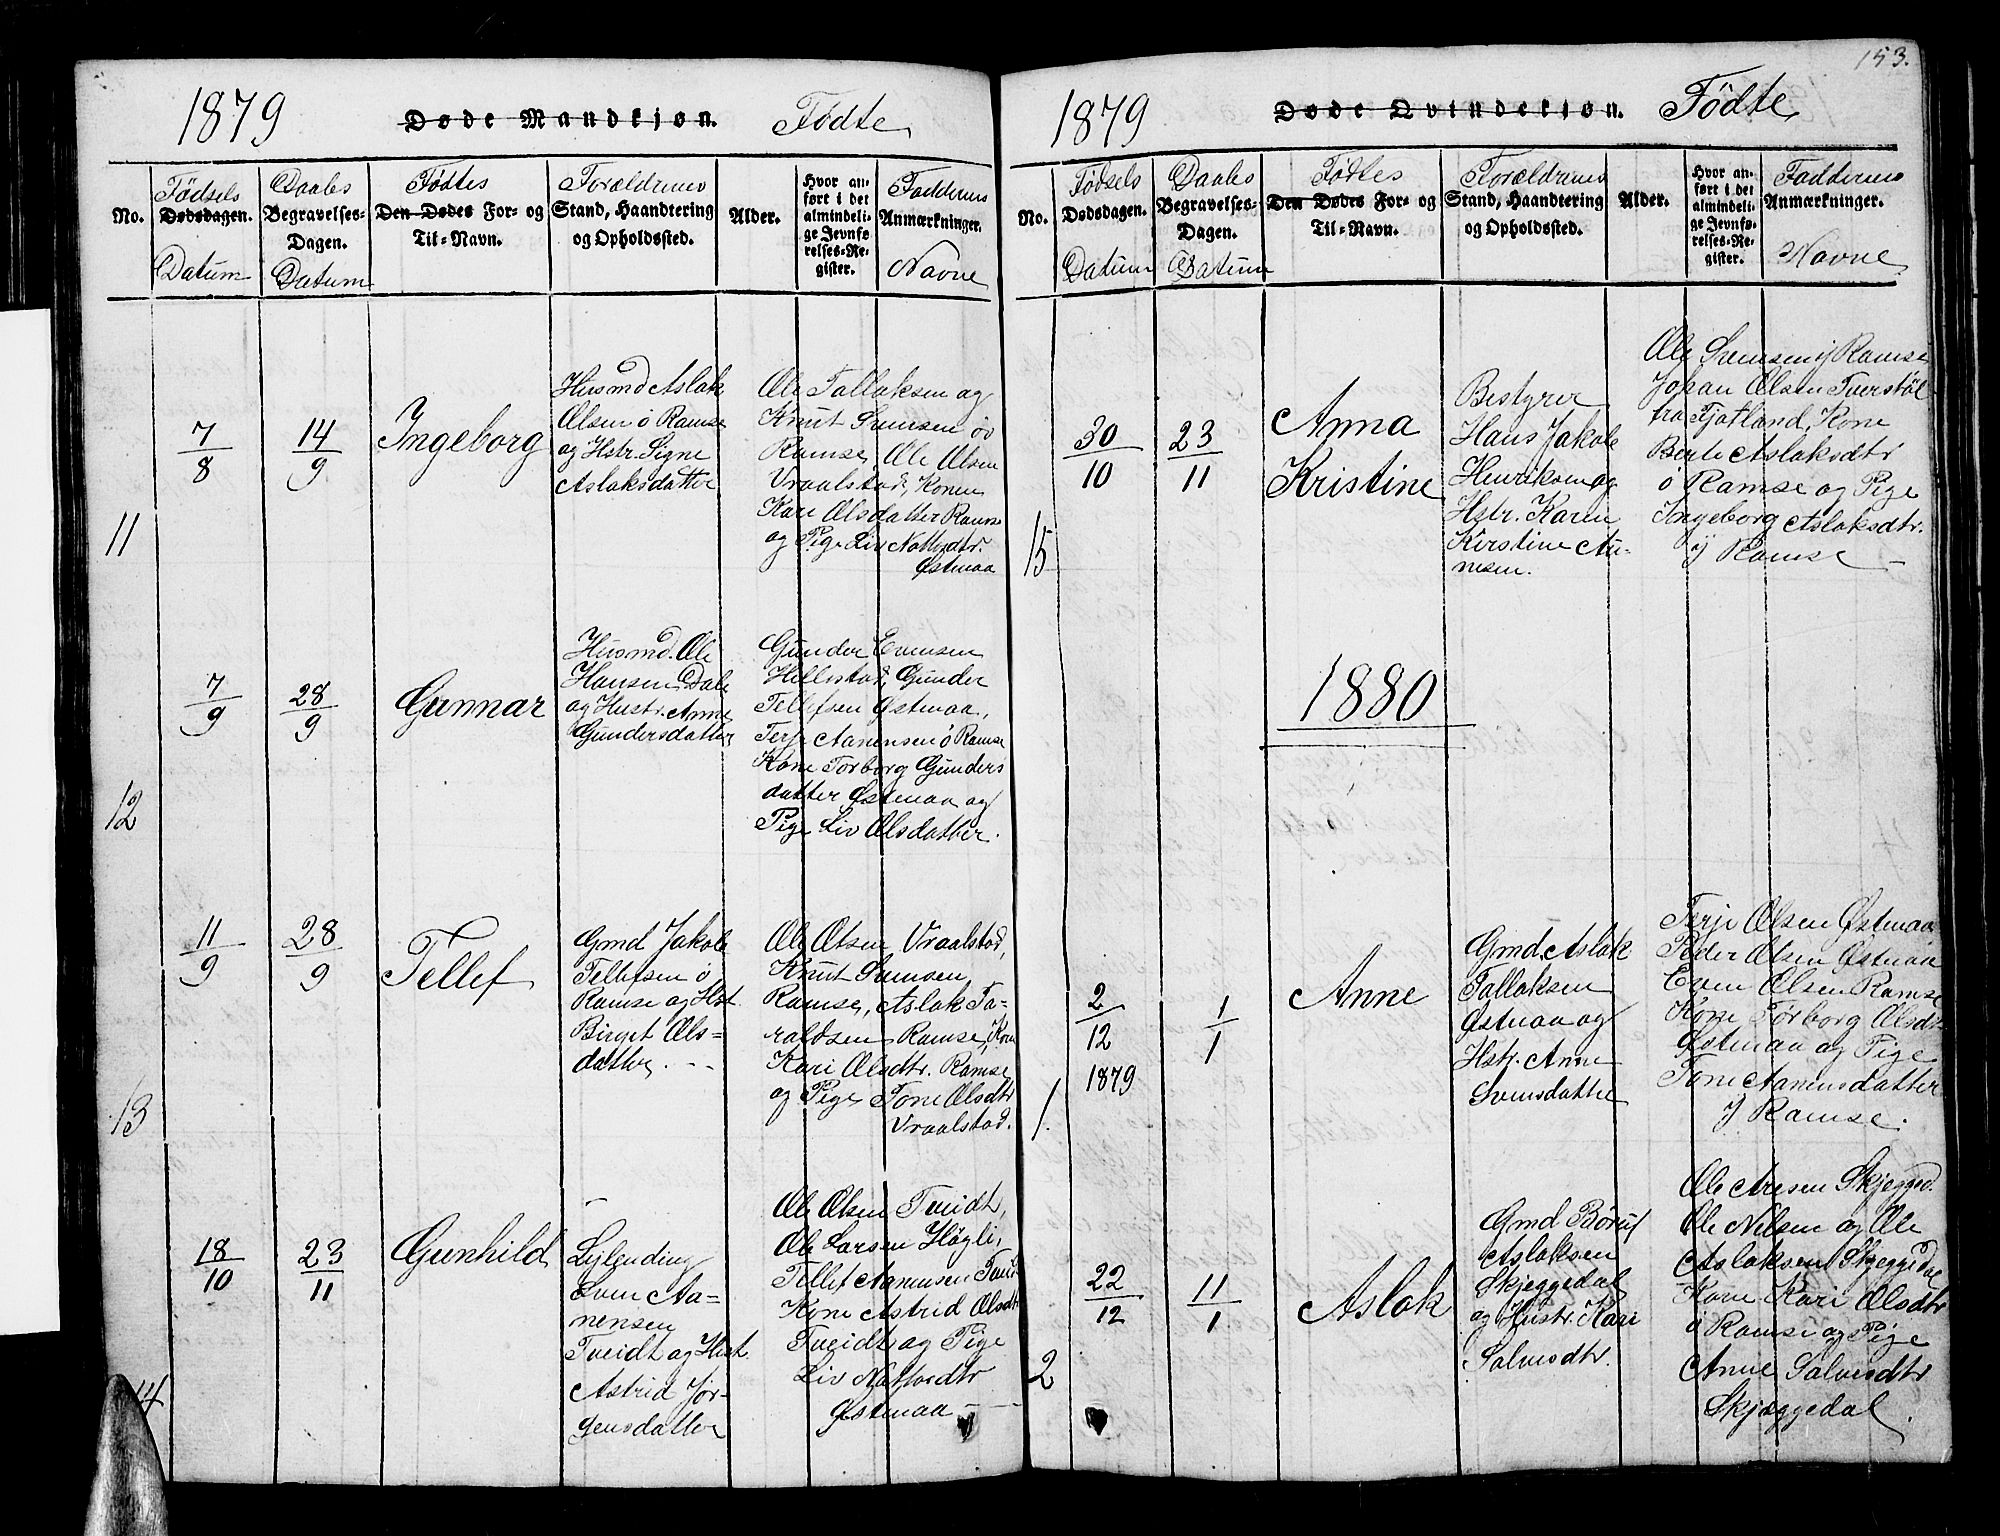 153.
1879 Døde Mandkjøn. Fødte
No.
Fødsels
Dødsdagen.
Datum
Daabs
Begravelses-
Dagen.
Datum
Fødtes
Den Dødes For- og
Til-Navn.
Forældrenes
Stand, Haandtering
og Opholdssted.
Alder.
Hvor an-
ført i det
almindeli-
ge Jevnfø-
relses-Re-
gister.
Faddernes
Anmærkninger.
Navne
11
7/8
14/9
Ingeborg
Husmd Aslak
Olsen ö Ramse
og Hstr. Signe
Aslaksdatter
Ole Tallaksen og
Knut Svensen ö
Ramse, Ole Olsen
Vraalstad, Konen
Kari Olsdatter Ramse
og Pige Liv
Østmaa
12
7/9
28/9
Gunnar
Husmd. Ole
Hansen Dale
og Hustr. Anne
Gundersdatter
Gunder Evensen
Hillestad, Gunder
Tellefsen Østmaa,
Terje Aanensen ö Ramse
Kone Torborg Gunders
datter Østmaa og
Pige Liv Olsdatter.
13
11/9
28/9
Tellef
Gmd Jakob
Tellefsen ö
Ramse og Hst.
Birget Ols-
datter. - -
Ole Olsen Vraalstad,
Knut Svensen
Ramse, Aslak Ta-
raldsen Ramse, Kone
Kari Olsdtr. Ramse
og Pige Tone Olsdtr
Vraalstad.
14
18/10
23/11
Gunhild
Leilending
Sven Aa-
nensen
Tveidt og Hust.
Astrid Jør-
gensdatter
Ole Olsen Tveidt,
Ole Larsen Høgli,
Tellef Aanensen Tveidt
Kone Astrid Olsdtr
Tveidt og Pige
Liv
Østmaa - -
1879 Døde Qvindekjøn. Fødte
No.
Fødsels
Dødsdagen.
Datum
Daabs
Begravelses-
Dagen.
Datum
Fødtes
Den Dødes For- og
Til-Navn.
Forældrenes
Stand, Haandtering
og Opholdssted.
Alder.
Hvor an-
ført i det
almindeli-
ge Jevnfø-
relses-Re-
gister.
Faddernes
Anmærkninger.
Navne
15
30/10
23/11
Anna
Kristine
Bestyrer
Hans Jakob
Henriksen og
Hstr. Karen
Kirstine An-
nesen.
Ole Svensen ij Ramse
Johan Olsen Tverstøl
fra Fjotland, Kone
Berte Aslaksdtr
ö Ramse og Pige
Ingeborg Aslaksdtr.
ij Ramse -
1880
1.
2/12
1879
1/1
Anne
Gmd. Aslak
Tallaksen
Østmaa og
Hstr. Anne
Svensdatter
Terje Olsen Østmaa
Peder Olsen Østmaa
Even Olsen Ramse
Kone Torborg Olsdtr
Østmaa og Pige
Tone Aanensdatter
ij Ramse.
2
22/12
11/1
Aslak
Gmd Børuf
Aslaksen
Skjeggedal
og Hustr. Kari
Salvesdtr.
Ole Aresen Skjegged.
Ole Nilsen og Ole
Aslaksen Skjeggedal
Kone Kari Olsdtr
ö Ramse og Pige
Anne Salvesdtr
Skjæggedal.